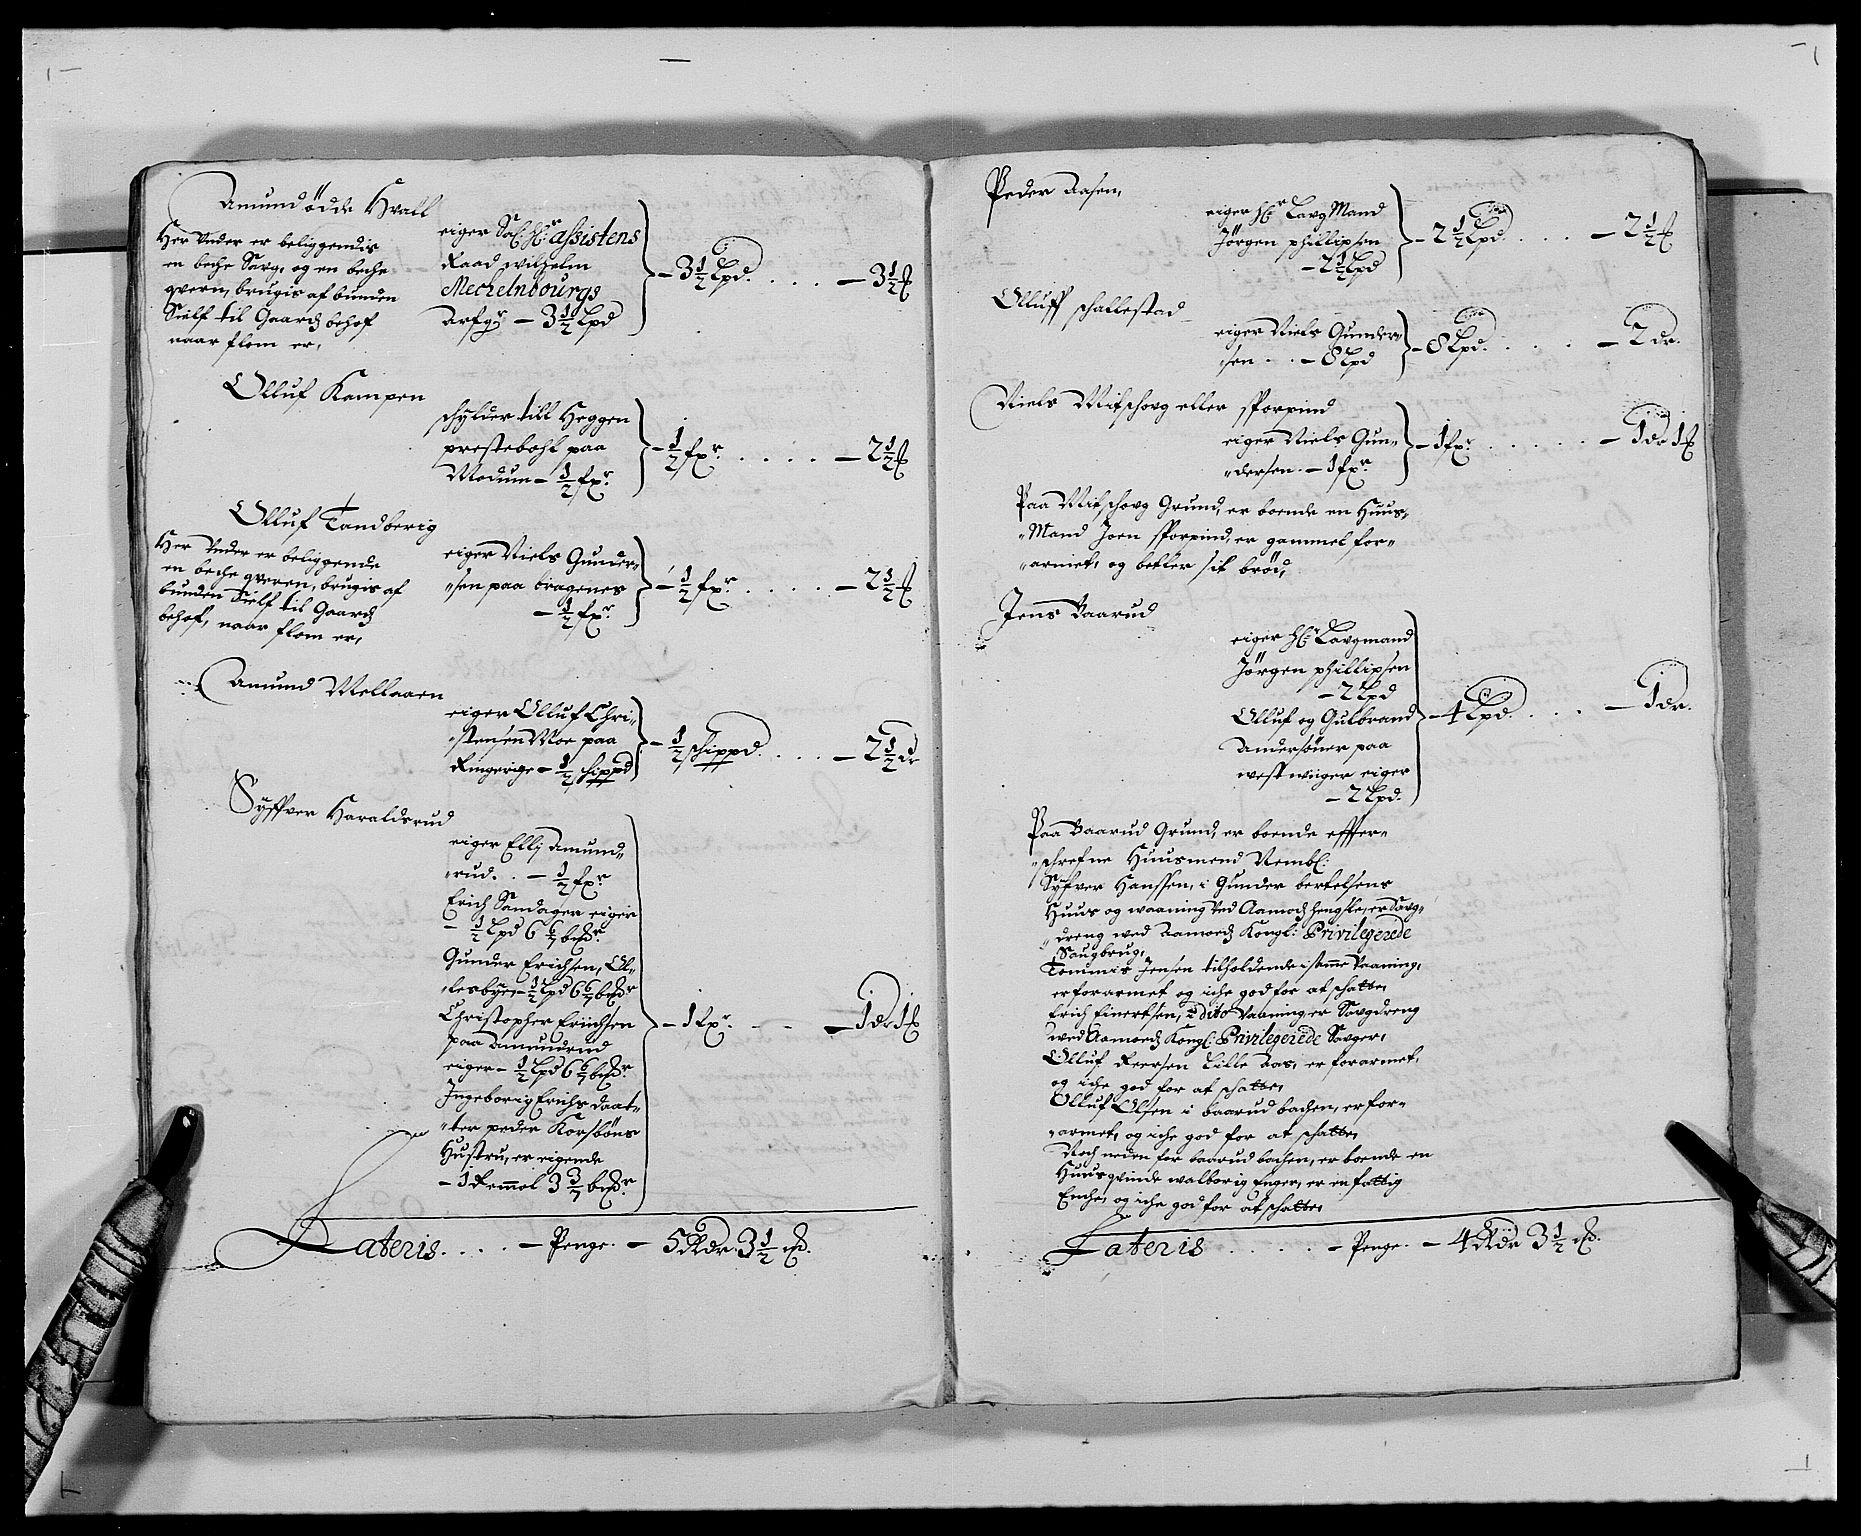 Amund ødde Hvall
Her Vnder er beliggendis
en beche Saug, og en beche
qvern, brugis af bunden
Sielf til Gaards behof
naar flom er,
eiger Sal: Hr: assistens
Raad wilhelm
Mechelnbourgs
Arfgr — 3½ Lpd
— 3½ Lpd. . . . — 3½ ß
Olluf Kampen
schylder till Heggen
prestebohl paa
Modum — ½ fxr.
— ½ fxr. . . . . — 2½ ß
Olluf Tandberig
Her Vnder er beliggende
en beche qveren, brugis af
bunden Sielf til Gaards
behof, naar flom er,
eiger Niels Gunder-
-sen paa bragenes
— ½ fxr.
— ½ fxr. . . . . — 2½ ß
Amund Mellaaen
eiger Olluf Chri-
-stensen Moe paa
Ringerige — ½ schippd
— ½ schippd. . . . — 2½ dr
Syffver Haraldsrud
eiger Ellj Amund-
-rud. . — ½ fxr.
Erich Sandager eiger
— ½ Lpd 6 6/7 bmdr.
Gunder Erichsen, Ol-
-lesbye, — ½ Lpd 6 6/7 bmdr
Christopher Erichsen
paa Amundrud
eiger — ½ Lpd 6 6/7 bmdr.
Ingeborig Erichs daat-
-ter peder Korsbøns
Hustru, er eigende
— 1 Remmol 3 3/7 bmdr.
— 1 fxr. — — — 1 dr 1 ß
Lateris. . . . — Penge. — 5 Rdr 3½ ß.
Peder Aasen,
eiger Hr: Laug Mand
Jørgen phillipsen
— 2½ Lpd
— 2½ Lpd. . . . — 2½ ß
Olluff schallestad
eiger Niels Gunder-
-sen . . — 8 Lpd
— 8 Lpd. . . . . — 2 dr.
Niels Mifschoug eller Sporpind
eiger Niels Gun-
-dersen. — 1 fxr.
— 1 fxr. . . . . . — 1 dr 1 ß
Paa Mifschoug Grund, er boende en Huus-
-Mand Joen Sporpind, er gammel for-
-armet, og betler sit brød,
Jens Baarud
eiger Hr: Laugmand
Jørgen phillipsen
— 2 Lpd
Olluf og Gulbrand
Andersøner paa
west wiiger eiger
— 2 Lpd.
— 4 Lpd. . . . — 1 dr.
Paa Baarud Grund, er boende effter-
-schrefne Huusmend Nembl:
Syfver Hanssen, i Gunder bertelsens
Huus og waaning Ved Aamods er Saug-
-dreng wed Aamods Kongl: Privilegerede
Saugbrug,
Tommis Jensen tilholdende i samme Vaaning,
er forarmet og iche god for at schatte,
Erich Einertsen, i dito Vaaning, er Saugdreng
wed Aamods Kongl: Privilegerede Sauger,
Olluf Reersen Lille Aas, er forarmet,
og iche god for at schatte,
Olluf Olsen i baarud bachen, er for-
-armet, og iche god for at schatte,
Noch neden for baarud bachen, er boende en
Huusqvinde walborig Enger, er en fattig
Enche, og iche god for at schatte,
Lateris . . . . . — Penge. — 4 Rdr 3½ ß.